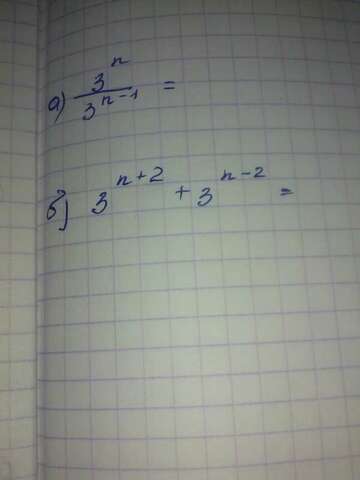 а) 3^n / 3^(n-1) =
б) 3^(n+2) + 3^(n-2) =